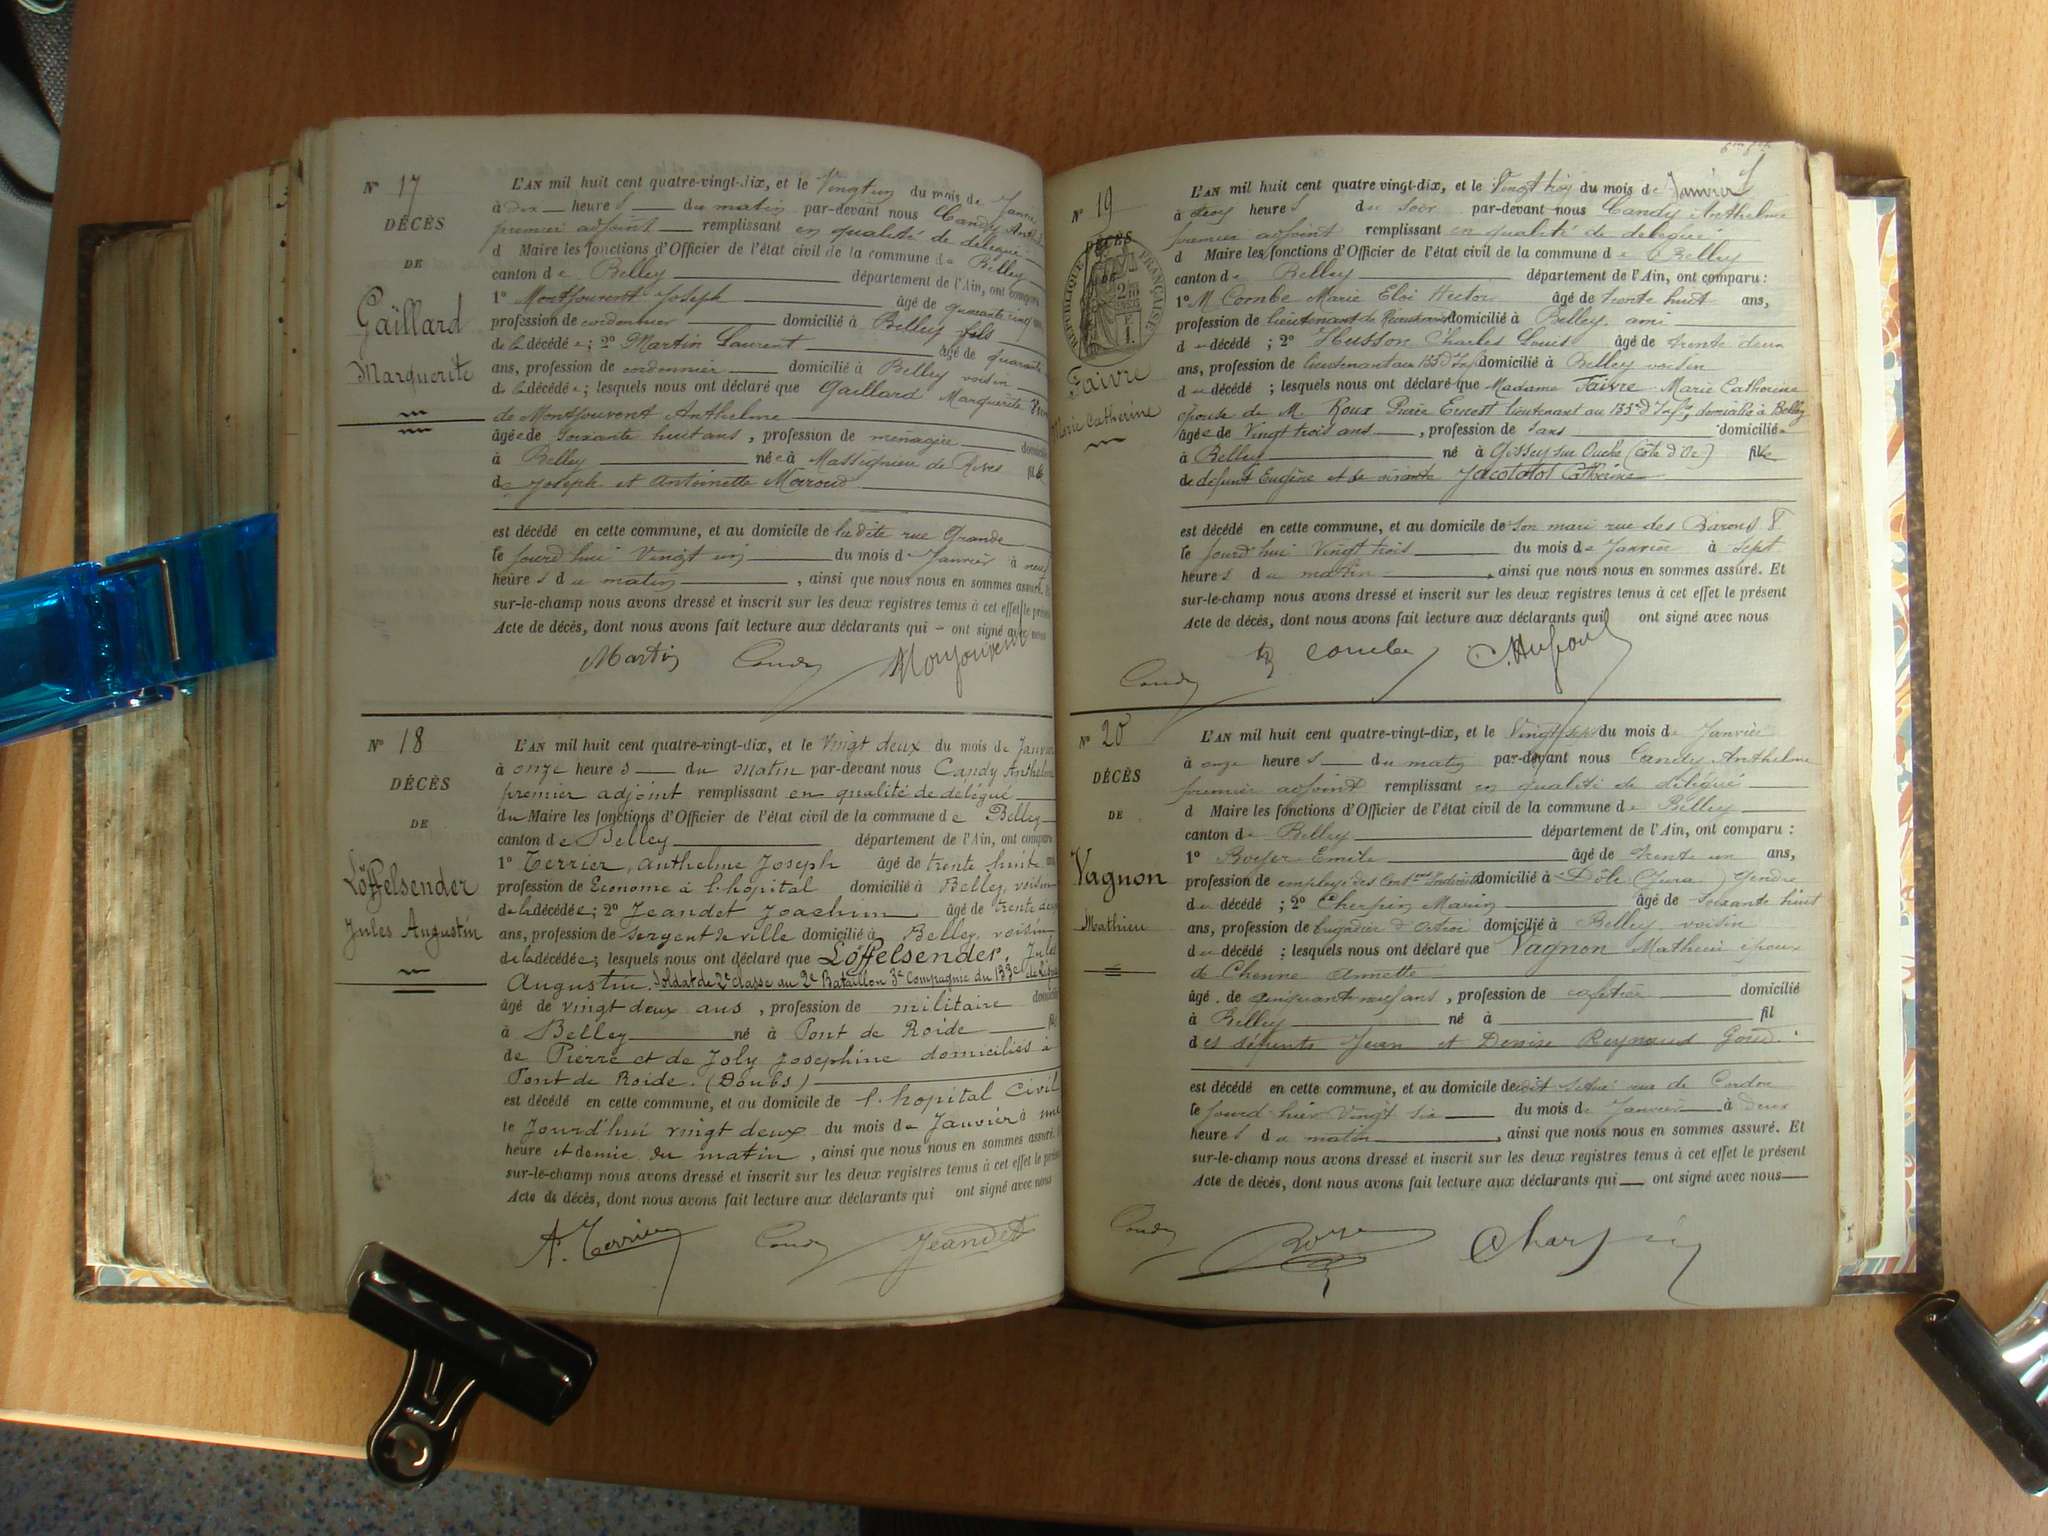 N° 17
DÉCÈS
DE
Gaillard
Marguerite
L'AN mil huit cent quatre-vingt-dix, et le Vingt un du mois de Janvier
à dix heures du matin par-devant nous Candy Anthelme
premier adjoint remplissant en qualité de délégué
d Maire les fonctions d'Officier de l'état civil de la commune de Belley
canton de Belley département de l'Ain, ont comparu
1° Montfouvent Joseph âgé de quarante cinq ans,
profession de cordonnier domicilié à Belley fils
de la décédée; 2° Martin Laurent âgé de quarante
ans, profession de cordonnier domicilié à Belley voisin
de la décédée; lesquels nous ont déclaré que Gaillard Marguerite
de Montfouvent Anthelme
âgée de soixante huit ans, profession de ménagère domicilié
à Belley née à Massignieu de Rives fille
de Joseph et Antoinette
est décédé en cette commune, et au domicile de ladite rue Grande
le jourd'hui Vingt un du mois de Janvier à neuf
heures du matin, ainsi que nous nous en sommes assuré. Et
sur-le-champ nous avons dressé et inscrit sur les deux registres tenus à cet effet le présent
Acte de décès, dont nous avons fait lecture aux déclarants qui ont signé avec nous
Martin Candy Monfouvent
N° 18
DÉCÈS
DE
Löffelsender
Jules Augustin
L'AN mil huit cent quatre-vingt-dix, et le vingt deux du mois de Janvier
à onze heures du matin par-devant nous Candy Anthelme
premier adjoint remplissant en qualité de délégué
du Maire les fonctions d'Officier de l'état civil de la commune de Belley
canton de Belley département de l'Ain, ont comparu
1° Terrier, Anthelme Joseph âgé de trente huit ans
profession de Econome à l'hôpital domicilié à Belley, voisin
de la décédée; 2° Jeandet Joachim âgé de trente deux
ans, profession de sergent de ville domicilié à Belley, voisin
de la décédée; lesquels nous ont déclaré que Löffelsender, Jules
Augustin. Soldat de 2e classe au 2e Bataillon 3e Compagnie du 133e de Ligne
âgé de vingt deux ans, profession de militaire domicilié
à Belley né à Pont de Roide fil
de Pierre et de Joly Josephine domiciliés à
Pont de Roide. (Doubs)
est décédé en cette commune, et au domicile de l'hopital civil
le Jourd'hui vingt deux du mois de Janvier à une
heure et demie du matin, ainsi que nous nous en sommes assuré. Et
sur-le-champ nous avons dressé et inscrit sur les deux registres tenus à cet effet le présent
Acte de décès, dont nous avons fait lecture aux déclarants qui ont signé avec nous
A. Terrier Candy Jeandet
N° 19
DÉCÈS
RÉPUBLIQUE FRANÇAISE
Faivre
Marie Catherine
L'AN mil huit cent quatre vingt-dix, et le Vingt trois du mois de Janvier
à trois heures du soir par-devant nous Candy Anthelme
premier adjoint remplissant en qualité de délégué
d Maire les fonctions d'Officier de l'état civil de la commune de Belley
canton de Belley département de l'Ain, ont comparu :
1° M Combe Marie Eloi Hector âgé de trente huit ans,
profession de lieutenant de Recrutement domicilié à Belley, ami
du décédé ; 2° Husson Charles Louis âgé de trente deux
ans, profession de lieutenant au 133e d'Inf. domicilié à Belley voisin
du décédé ; lesquels nous ont déclaré que Madame Faivre Marie Catherine
épouse de M. Roux Pierre Ernest lieutenant au 133e d'Inf. domicilié à Belley
âgée de Vingt trois ans, profession de sans domicilié
à Belley né à Gissey sur Ouche (Côte d'Or) fille
de défunt Eugène et de vivante Jacotot Catherine
est décédé en cette commune, et au domicile de son mari rue des Barons 8
le jourd'hui Vingt trois du mois de Janvier à sept
heures du matin, ainsi que nous nous en sommes assuré. Et
sur-le-champ nous avons dressé et inscrit sur les deux registres tenus à cet effet le présent
Acte de décès, dont nous avons fait lecture aux déclarants qui ont signé avec nous
Candy Combe C. Husson
N° 20
DÉCÈS
DE
Vagnon
Mathieu
L'AN mil huit cent quatre-vingt-dix, et le Vingt sept du mois de Janvier
à onze heures du matin par-devant nous Candy Anthelme
premier adjoint remplissant en qualité de délégué
d Maire les fonctions d'Officier de l'état civil de la commune de Belley
canton de Belley département de l'Ain, ont comparu :
1° Boyer Emile âgé de trente un ans,
profession de employé des Cont. Indirectes domicilié à Dôle (Jura) gendre
du décédé ; 2° Cherpin Marin âgé de soixante huit
ans, profession de brigadier d'octroi domicilié à Belley, voisin
du décédé ; lesquels nous ont déclaré que Vagnon Mathieu époux
de Chenne Annette
âgé de cinquante neuf ans, profession de cafetier domicilié
à Belley né à fil
des défunts Jean et Denise Reynaud
est décédé en cette commune, et au domicile de situé rue de Cordon
le jourd'hier Vingt six du mois de Janvier à deux
heures du matin, ainsi que nous nous en sommes assuré. Et
sur-le-champ nous avons dressé et inscrit sur les deux registres tenus à cet effet le présent
Acte de décès, dont nous avons fait lecture aux déclarants qui ont signé avec nous
Candy Boyer Charpin